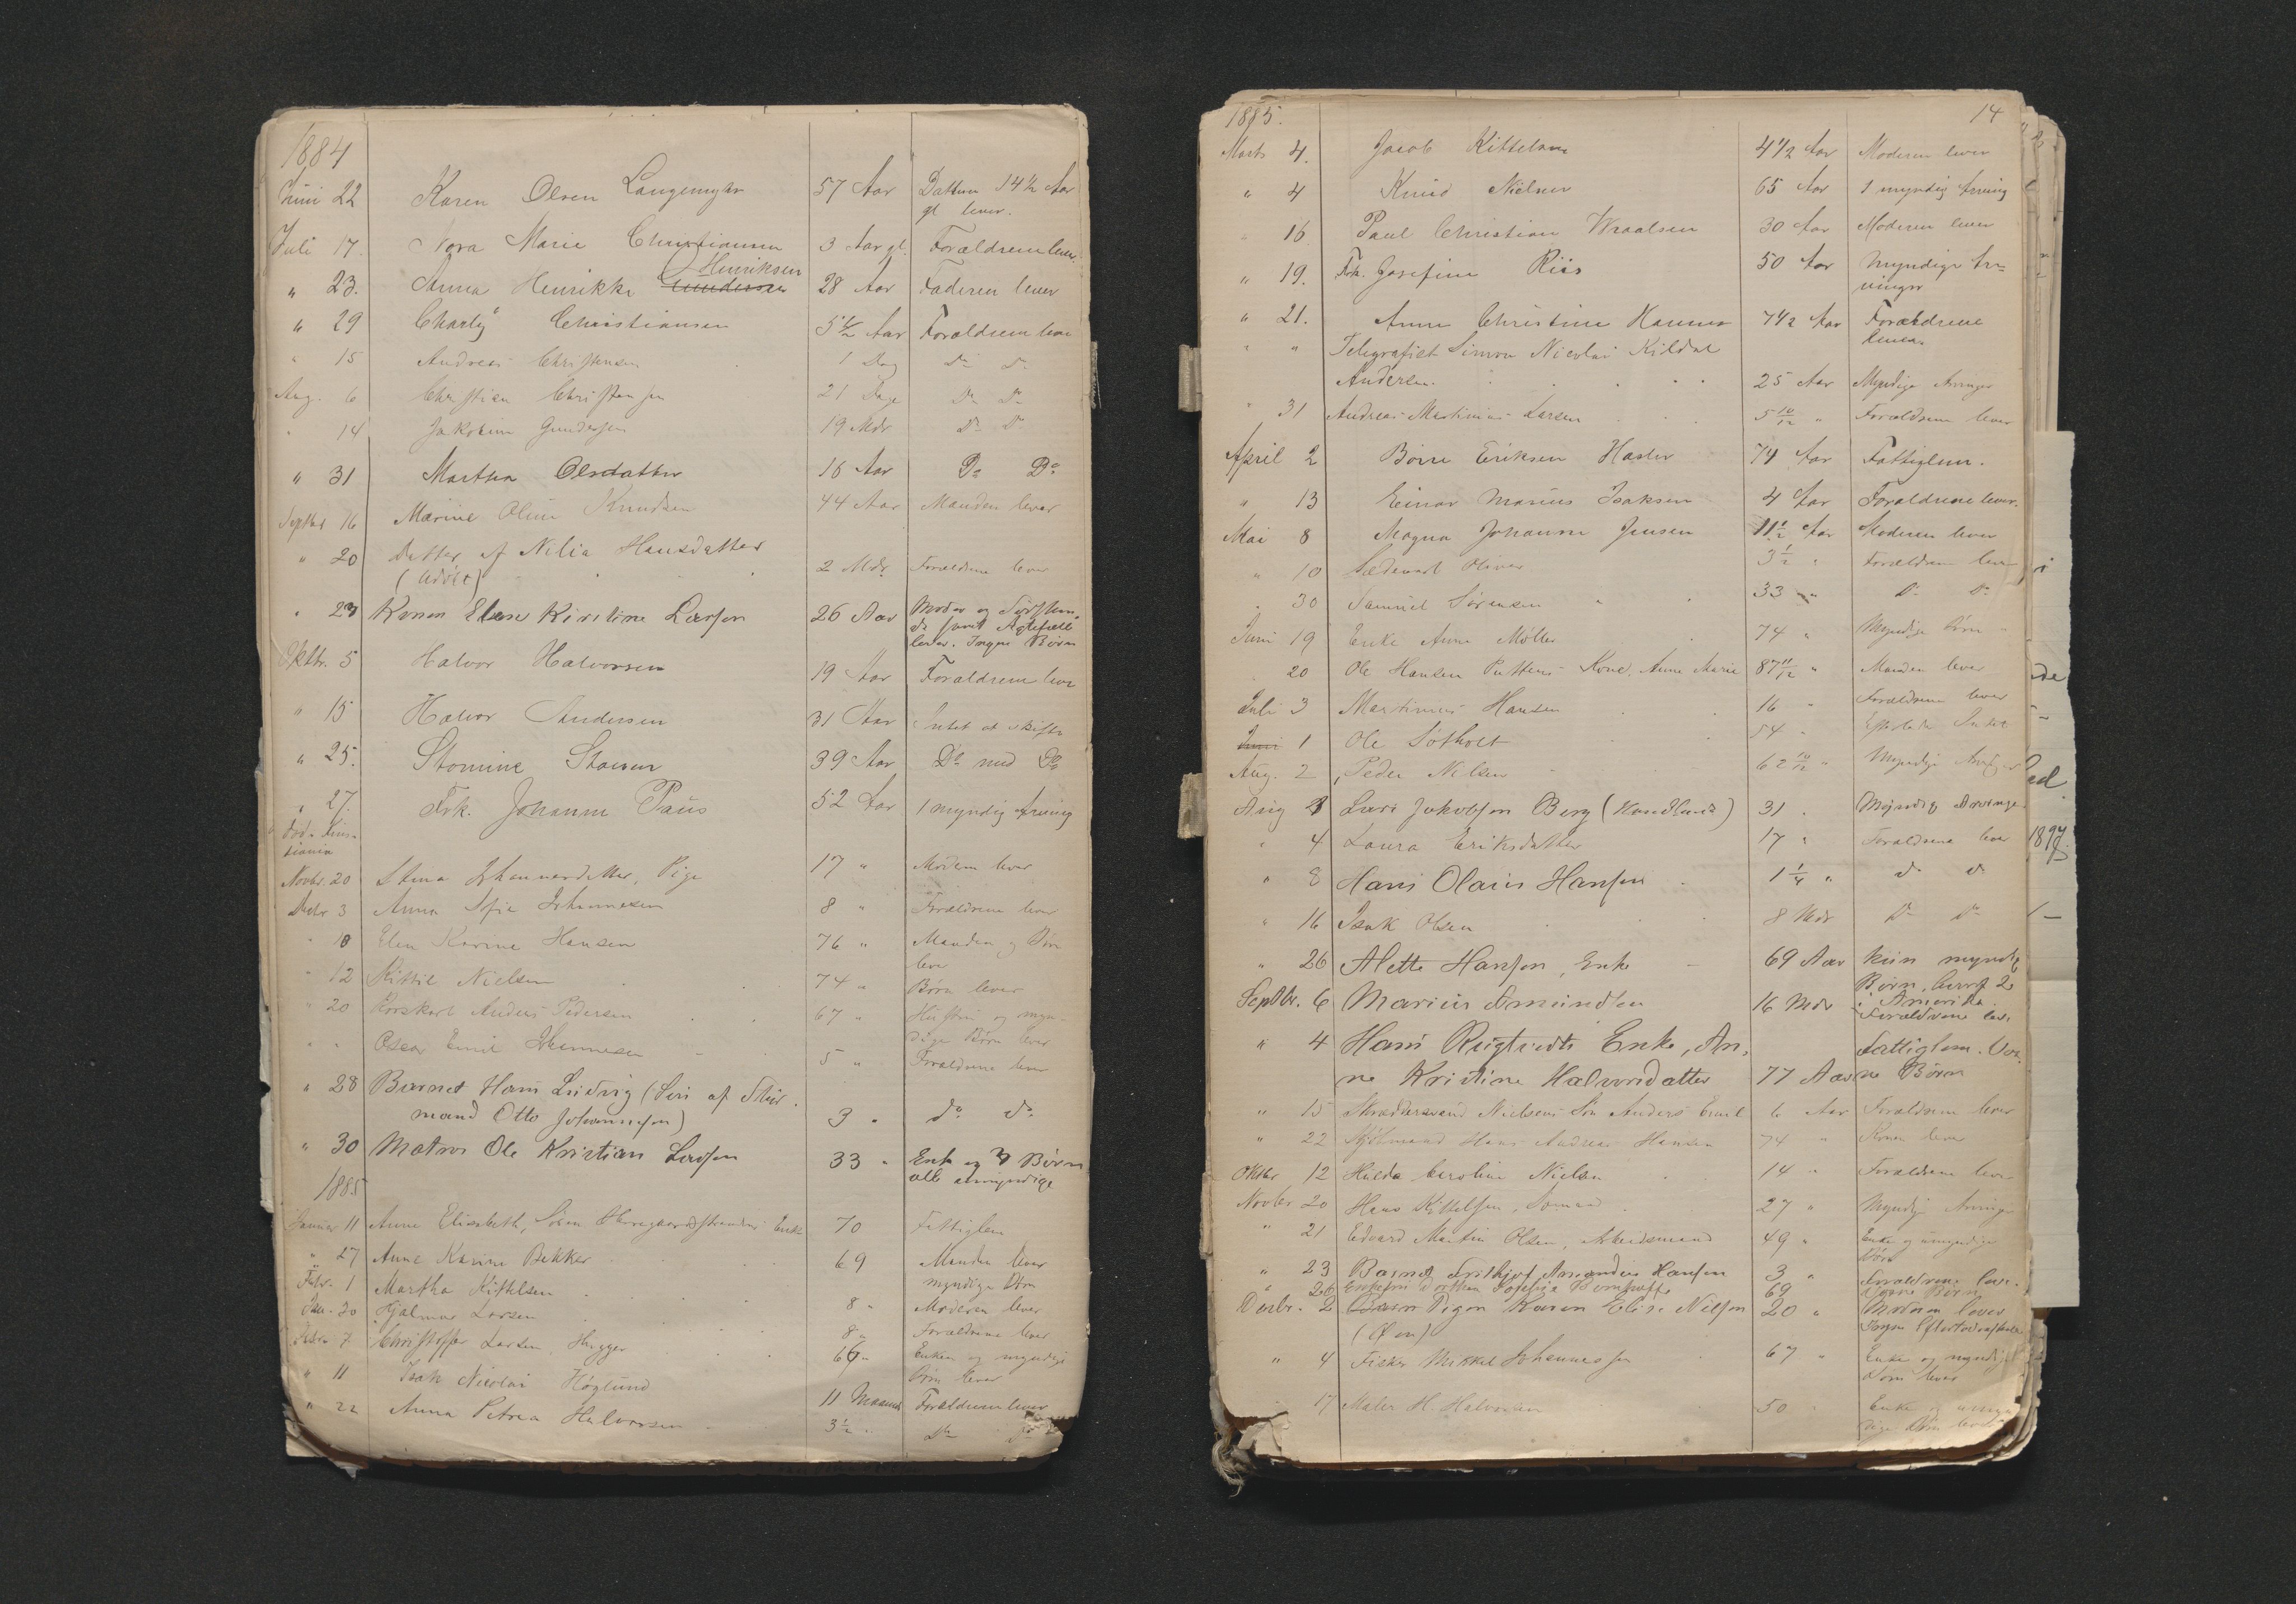 1884
Juni 22 Karen Olsen Langemyhr 57 Aar Datteren 14½ Aar
gl lever.
Juli 17. Nora Marie Christiansen 3 Aar gl. Forældrene lever.
Henriksen
" 23. Anna Henrikke Gundersen 28 Aar Faderen lever
" 29 Charly Christiansen 5½ Aar Forældrene lever
" 15 Andreas Christensen 1 Dag Do Do
Aug. 6 Christian Christensen 21 Dage Do Do
" 14 Jakobine Gundersen 19 Mdr Do Do
" 31 Marthea Olsdatter 16 Aar Do Do
Septbr 16 Marine Oline Knudsen 44 Aar Manden lever
" 20 Datter af Nilia Hansdatter
(uægte) 2 Mdr. Forældrene lever
" 23 Karen Elise Kirstine Larsen 26 Aar Moder og Sødsken
da samt Ægtefælle
lever. Ingen Børn
Oktbr. 5 Halvor Halvorsen 19 Aar Forældrene lever
" 15 Halvor Andersen 31 Aar Intet at skifte
" 25. Stomine Stousen 39 Aar Do med Do
" 27. Frk. Johanne Paus 52 Aar 1 myndig Arving
død i Kris-
tiania
Novbr. 20 Stina Johannesdatter, Pige 17 " Modren lever
Decbr 3 Anna Sofie Johannesen 8 " Forældrene lever
" 10 Elen Karine Hansen 76 " Manden og Børn
lever
" 12 Kittil Nielsen 74 " Børn lever
" 20 Anders Pedersen 67 " Hustru og myn-
dige Børn lever
" " Oscar Emil Johannesen 5 " Forældrene lever
" 28 Barnet Hans Ludvig (Søn af Stür-
mand Otto Johannesen) 3 " do do
" 30 Matros Ole Kristian Larsen 33 " Enke og 3 Børn
alle umyndige
1885
Januar 11 Anne Elisabeth, Søren Enke 70 Fattiglem
" 27 Anne Karine Bekker 69 Manden lever
myndige Børn
Febr. 1 Martha Kittelsen 8 " Moderen lever
Jan. 30 Hjalmar Larsen 8 " Forældrene lever
Febr 7 Christoffer Larsen, Hugger 66 " Enken og myndige
Børn lever
" 11 Isak Nicolai Høglund 11 Maaned Forældrene lever
" 22 Anna Petrea Halvorsen 3½ " Do Do
1885. 14
Marts 4. Jacob Kittelsen 4½ Aar Moderen lever
" 4 Knud Nielsen 65 Aar 1 myndig Arving
" 16 Paul Christian Wraalsen 30 Aar Moderen lever
" 19. Frk. Josefine Riis 50 Aar Myndige Ar-
vinger
" 21. Anne Christine Hansen 7½ Aar Forældrene
lever.
" " Telegrafist Simon Nicolai Kildal
Andersen. 25 Aar Myndige Arvinger
" 31 Andreas Martinius Larsen 5 10/12 " Forældrene lever
April 2 Børre Eriksen Hasler 74 Aar Fattiglem.
" 13 Einar Marius Isaksen 4 Aar Forældrene lever.
Mai 8 Magna Johanne Jensen 11½ Aar Moderen lever
" 10 Oliver 3½ " Forældrene lever
" 30 Samuel Sørensen 33 " Do Do
Juni 19 Enke Anne Møller 74 " Myndige Børn
20 Ole Hansen Kone, Anne Marie 87 11/12 " Manden lever
Juli 3 Martinius Hansen 16 " Forældrene lever
Juni 1 Ole Søtholt 54 " Efterlader Intet
Aug. 2 Peder Nilsen 62 10/12 " Myndige Arvinger
Aug 3 Lars Jakobsen Berg 31 " Myndig Arvinge
" 4 Laura Eriksdatter 17 " Forældrene lever
" 8 Hans Olaus Hansen 1¼ " do do
" 16 Isak Olsen 8 Mdr Do Do
" 26 Alette Hansen, Enke 69 Aar kun myndige
Børn, hvoraf 2
i Amerika.
Septbr. 6 Marius Amundsen 16 Mdr Forældrene lever
" 4 Hans Rugtvedts Enke, An- Fattiglem. Vox-
ne Kristine Halvorsdatter 77 Aar ne Børn
" 15 Skræddersvend Nielsens Søn Anders Emil 6 Aar Forældrene lever
" 22 Hans Andreas Hansen 74 " Konen lever
Oktbr 12 Hulda Caroline Nielsen 14 " Forældrene lever
Novbr 20 Hans Kittelsen, Sømand 27 " Myndige Arvinger
" 21 Edvard Martin Olsen, Arbeidsmand 49 " Enke og umyndige
Børn
" 23 Barnet Frithjof Amandus Hansen 3 " Forældrene lever.
" 26 Enkefru Dorthea Sofie 69 Børn
Decbr. 2 Barn Pigen Karen Elise Nilsen 20 " Moderen lever
(Øen) Ingen
" 4 Fisker Mikkel Johannessen 67 " Enke og myndige
Børn lever
" 17 Maler H. Halvorsen 50 " Enke og umyn-
dige Børn lever
1897